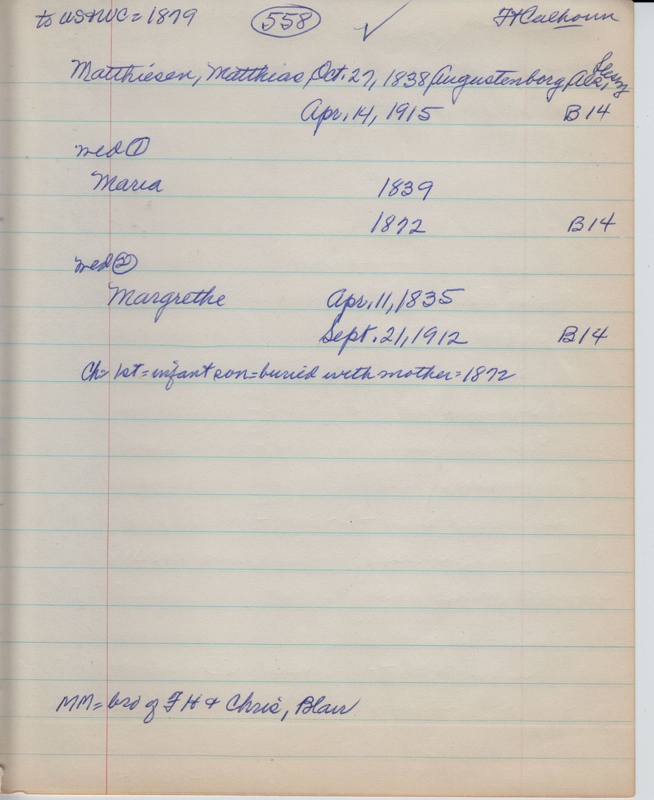 to US+WC = 1879 558 ✓ Ft Calhoun
Matthiesen, Matthias, Oct. 27, 1838, Augustenborg, Als,
Apr. 14, 1915 B14
med ①
Maria 1839
1872 B14
med ②
Margrethe Apr. 11, 1835
Sept. 21, 1912 B14
Ch = 1st = infant son = buried with mother = 1872
MM = bro of FH + Chris, Blair